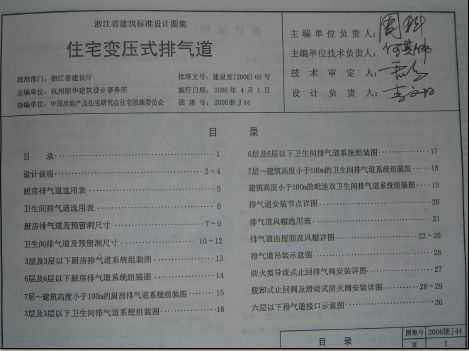 浙江省建筑标准设计图集
住宅变压式排气道
批准部门：浙江省建设厅
批准文号：建设发[2006]65号
主编单位：杭州
施行日期：2006年4月1日
协编单位：中国房地产及住宅研究会住宅设施委员会
图集号：2006浙J44
主编单位负责人：
主编单位技术负责人：
技术审定人：
设计负责人：
目 录
目 录 1
设计说明 2-4
厨房排气道选用表 5
卫生间排气道选用表 6
厨房排气道及预留洞尺寸 7-9
卫生间排气道及预留洞尺寸 10-12
3层及3层以下厨房排气道系统组装图 13
6层及6层以下厨房排气道系统组装图 14
7层~建筑高度小于100m的厨房排气道系统组装图 15
3层及3层以下卫生间排气道系统组装图 16
6层及6层以下卫生间排气道系统组装图 17
7层~建筑高度小于100m的卫生间排气道系统组装图 18
建筑高度小于100m的毗连双卫生间排气道系统组装图 19
排气道安装节点详图 20
排气道风帽选用图 21
排气道出屋面及风帽详图 22-25
排气道吊装示意图 26
防火型导流式止回排气阀安装详图 27
止回阀及滑动式防火阀安装详图 28-29
六层以下排气道接口示意图 30
目 录
图集号 2006浙J44
页 1